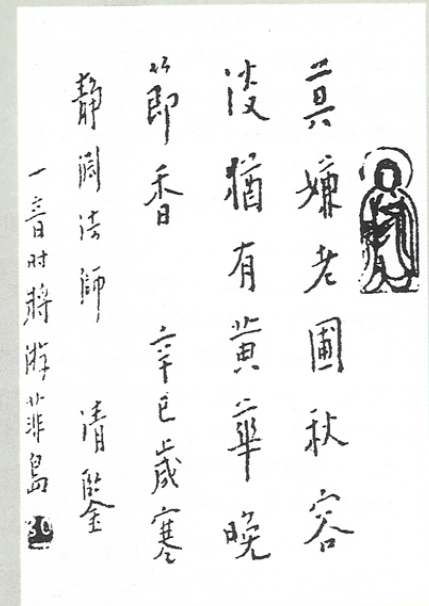 莫嫌老圃秋容
淡猶有黄華晚
節香 辛巳歲寒
静法師 清鑒
一音时將游菲島